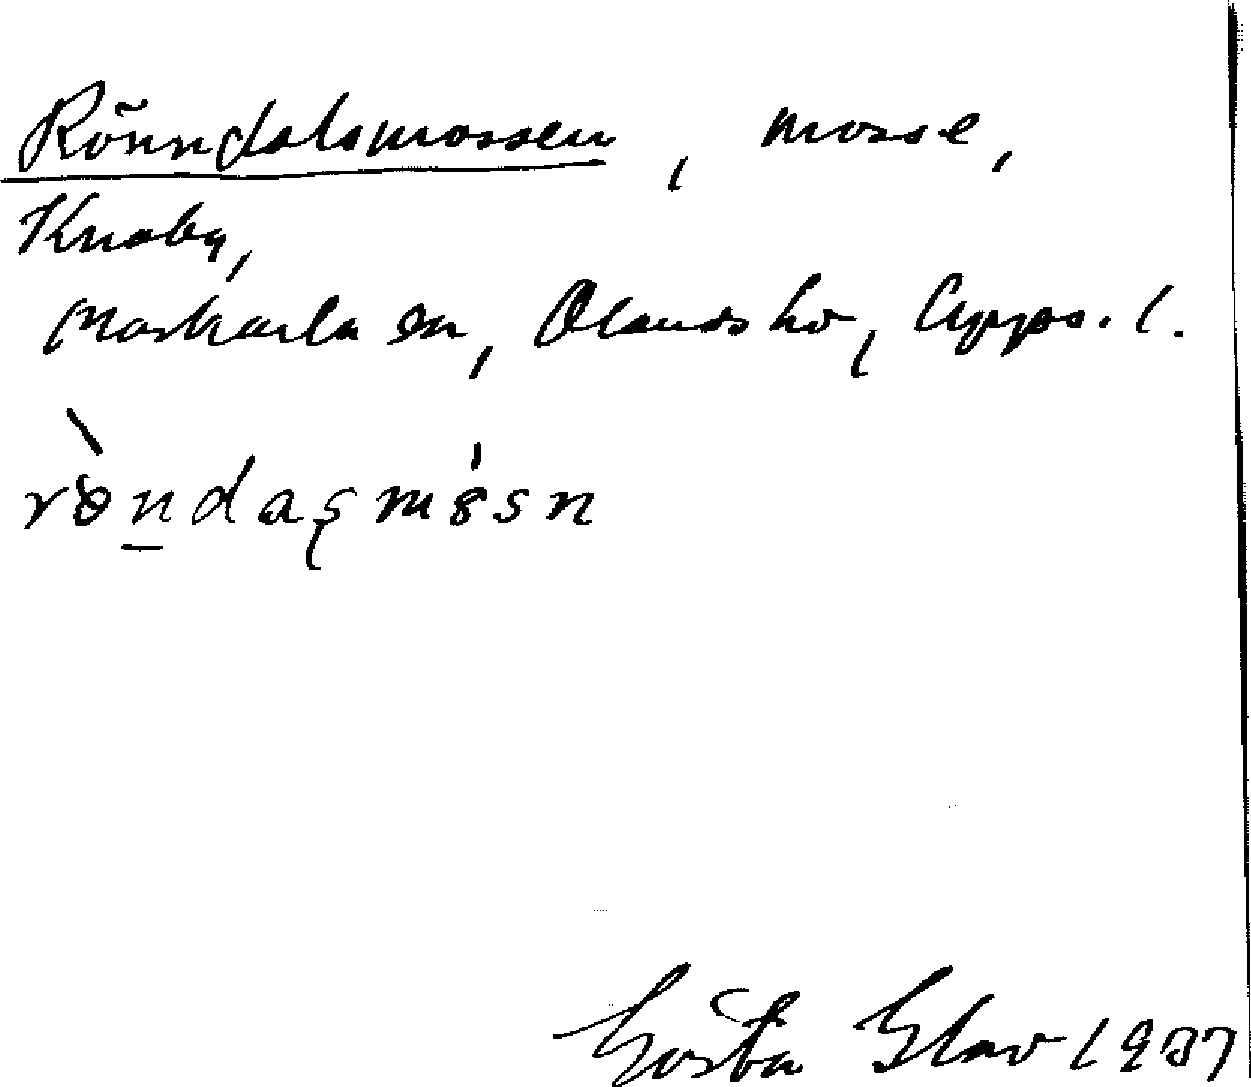 Rönndalsmossen, mosse,
Knaby,
Morkarla sn, Olands hd, Upps. l.
Gösta Glav 1937